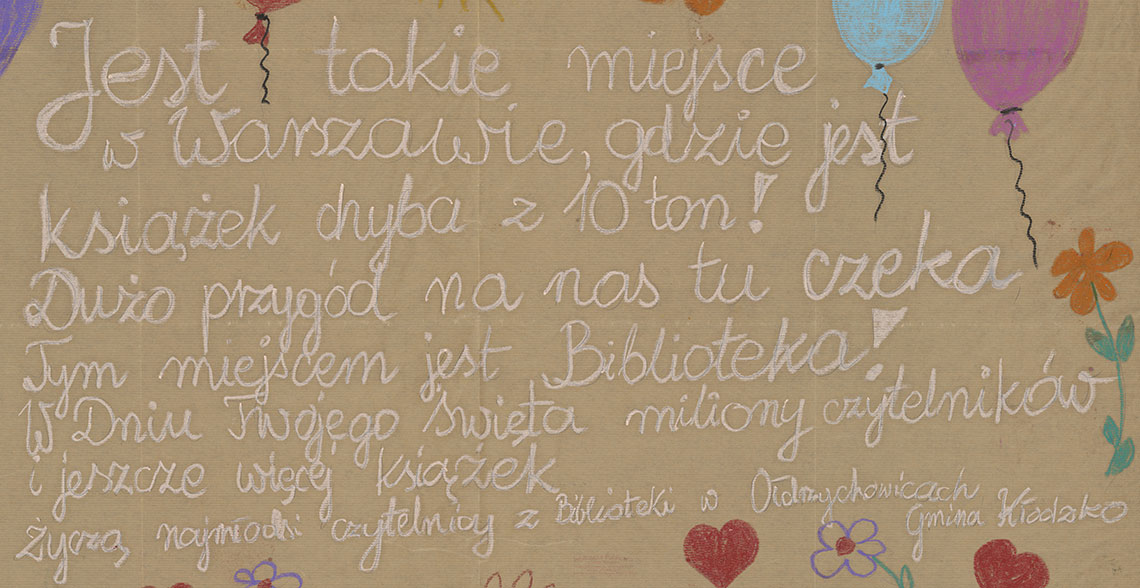 Jest takie miejsce
w Warszawie, gdzie jest
książek chyba z 10 ton!
Dużo przygód na nas tu czeka
Tym miejscem jest Biblioteka!
W Dniu Twojego święta miliony czytelników
i jeszcze więcej książek
życzą najmłodsi czytelnicy z Biblioteki w Ołdrzychowicach
Gmina Kłodzko